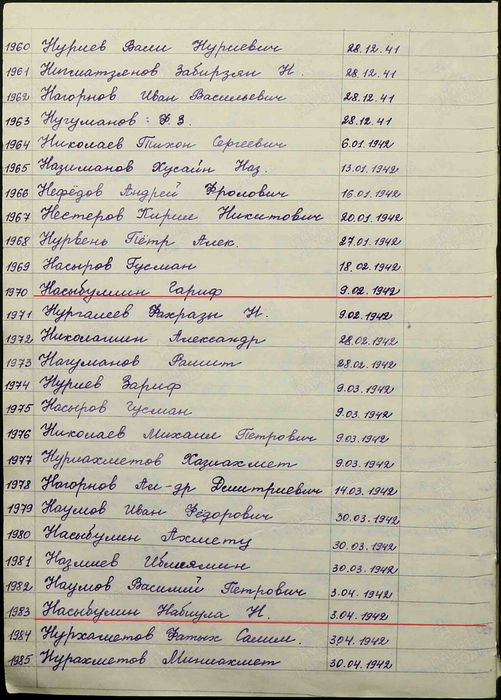 1960 Нуриев Васи Нуриевич 28.12.41
1961 Нигматзянов Забирзян Н. 28.12.41
1962 Нагорнов Иван Васильевич 28.12.41
1963 Нугуманов : Ф З. 28.12.41
1964 Николаев Тихон Сергеевич 6.01.1942
1965 Назиманов Хусаин Наз. 13.01.1942
1966 Нефёдов Андрей Фролович 16.01.1942
1967 Нестеров Кирил Никитович 20.01.1942
1968 Нурвень Пётр Алек. 27.01.1942
1969 Насыров Гусман 18.02.1942
1970 Насыбуллин Гариф 9.02.1942
1971 Нургалеев Фахразы Н. 9.02.1942
1972 Николашин Александр 28.02.1942
1973 Нагуманов Рашит 28.02.1942
1974 Нуриев Зариф 9.03.1942
1975 Насыров Гусман 9.03.1942
1976 Николаев Михаил Петрович 9.03.1942
1977 Нуриахметов Хазиахмет 9.03.1942
1978 Нагорнов Ал-др Дмитриевич 14.03.1942
1979 Наумов Иван Фёдорович 30.03.1942
1980 Насыбулин Ахмету 30.03.1942
1981 Назлиев Иблиямин 30.03.1942
1982 Наумов Василий Петрович 3.04.1942
1983 Насыбулин Набиула Н. 3.04.1942
1984 Нурхаметов Фатых Салим. 304.1942
1985 Нурахметов Миниахмет 30.04.1942